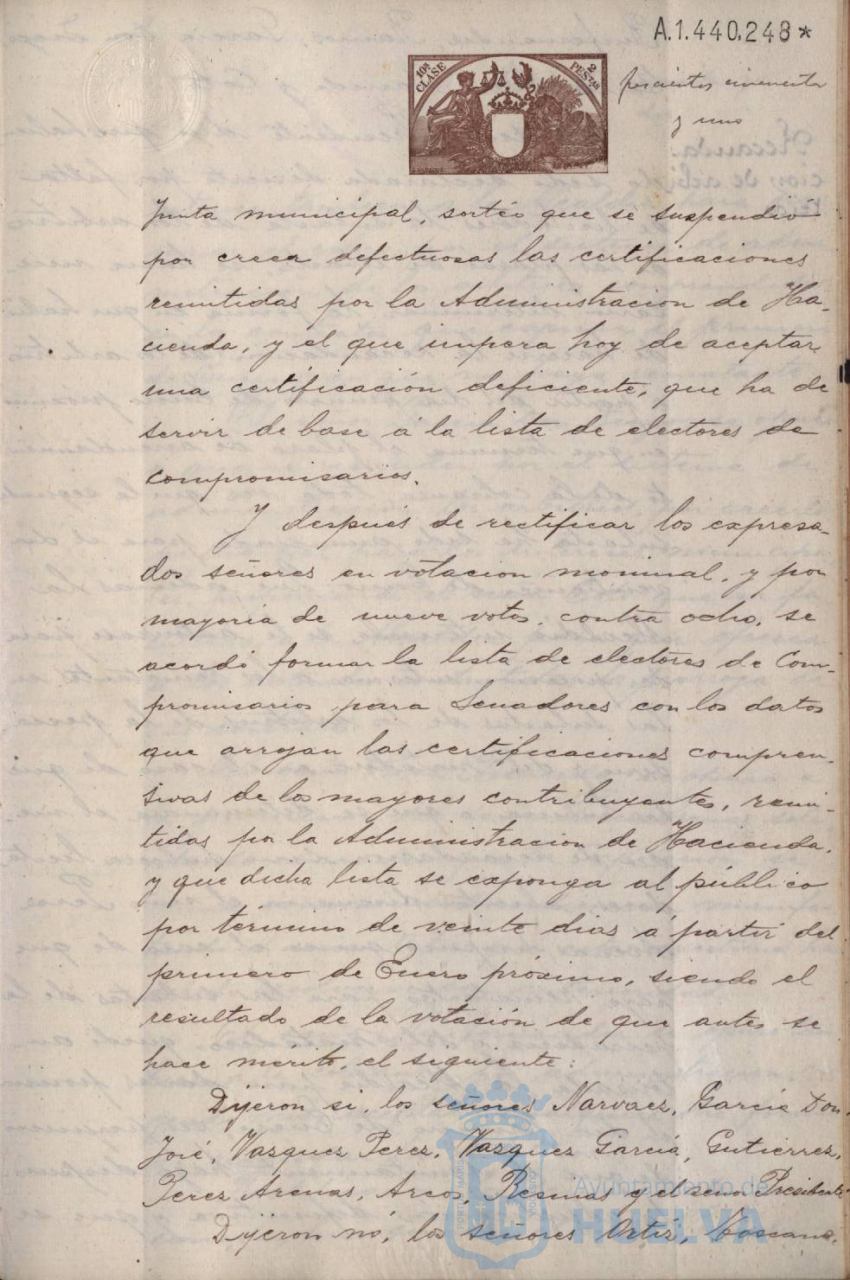 A.1.440.248*
10ª CLASE 2 PESTAS
y uno
Junta municipal, sortéo que se suspendio
por creer defectuosas las certificaciones
remitidas por la Administracion de Ha-
cienda, y el que impera hoy de aceptar
una certificación deficiente, que ha de
servir de base á la lista de electores de
compromisarios.
Y después de rectificar los expresa-
dos señores en votacion nominal, y por
mayoría de nueve votos, contra ocho, se
acordó formar la lista de electores de Com-
promisarios para Senadores con los datos
que arrojan las certificaciones compren-
sivas de los mayores contribuyentes, remi-
tidas por la Administracion de Hacienda,
y que dicha lista se exponga al público
por término de veinte dias á partir del
primero de Enero próximo, siendo el
resultado de la votación de que antes se
hace mérito, el siguiente:
Dijeron si, los señores Narvaez, García Don
José, Vazquez Perez, Vazquez García, Gutierrez,
Perez Arenas, Arcos, Resinas y el señor Presidente
Dijeron nó, los señores Ortiz, Toscano,
Ayuntamiento de
HUELVA